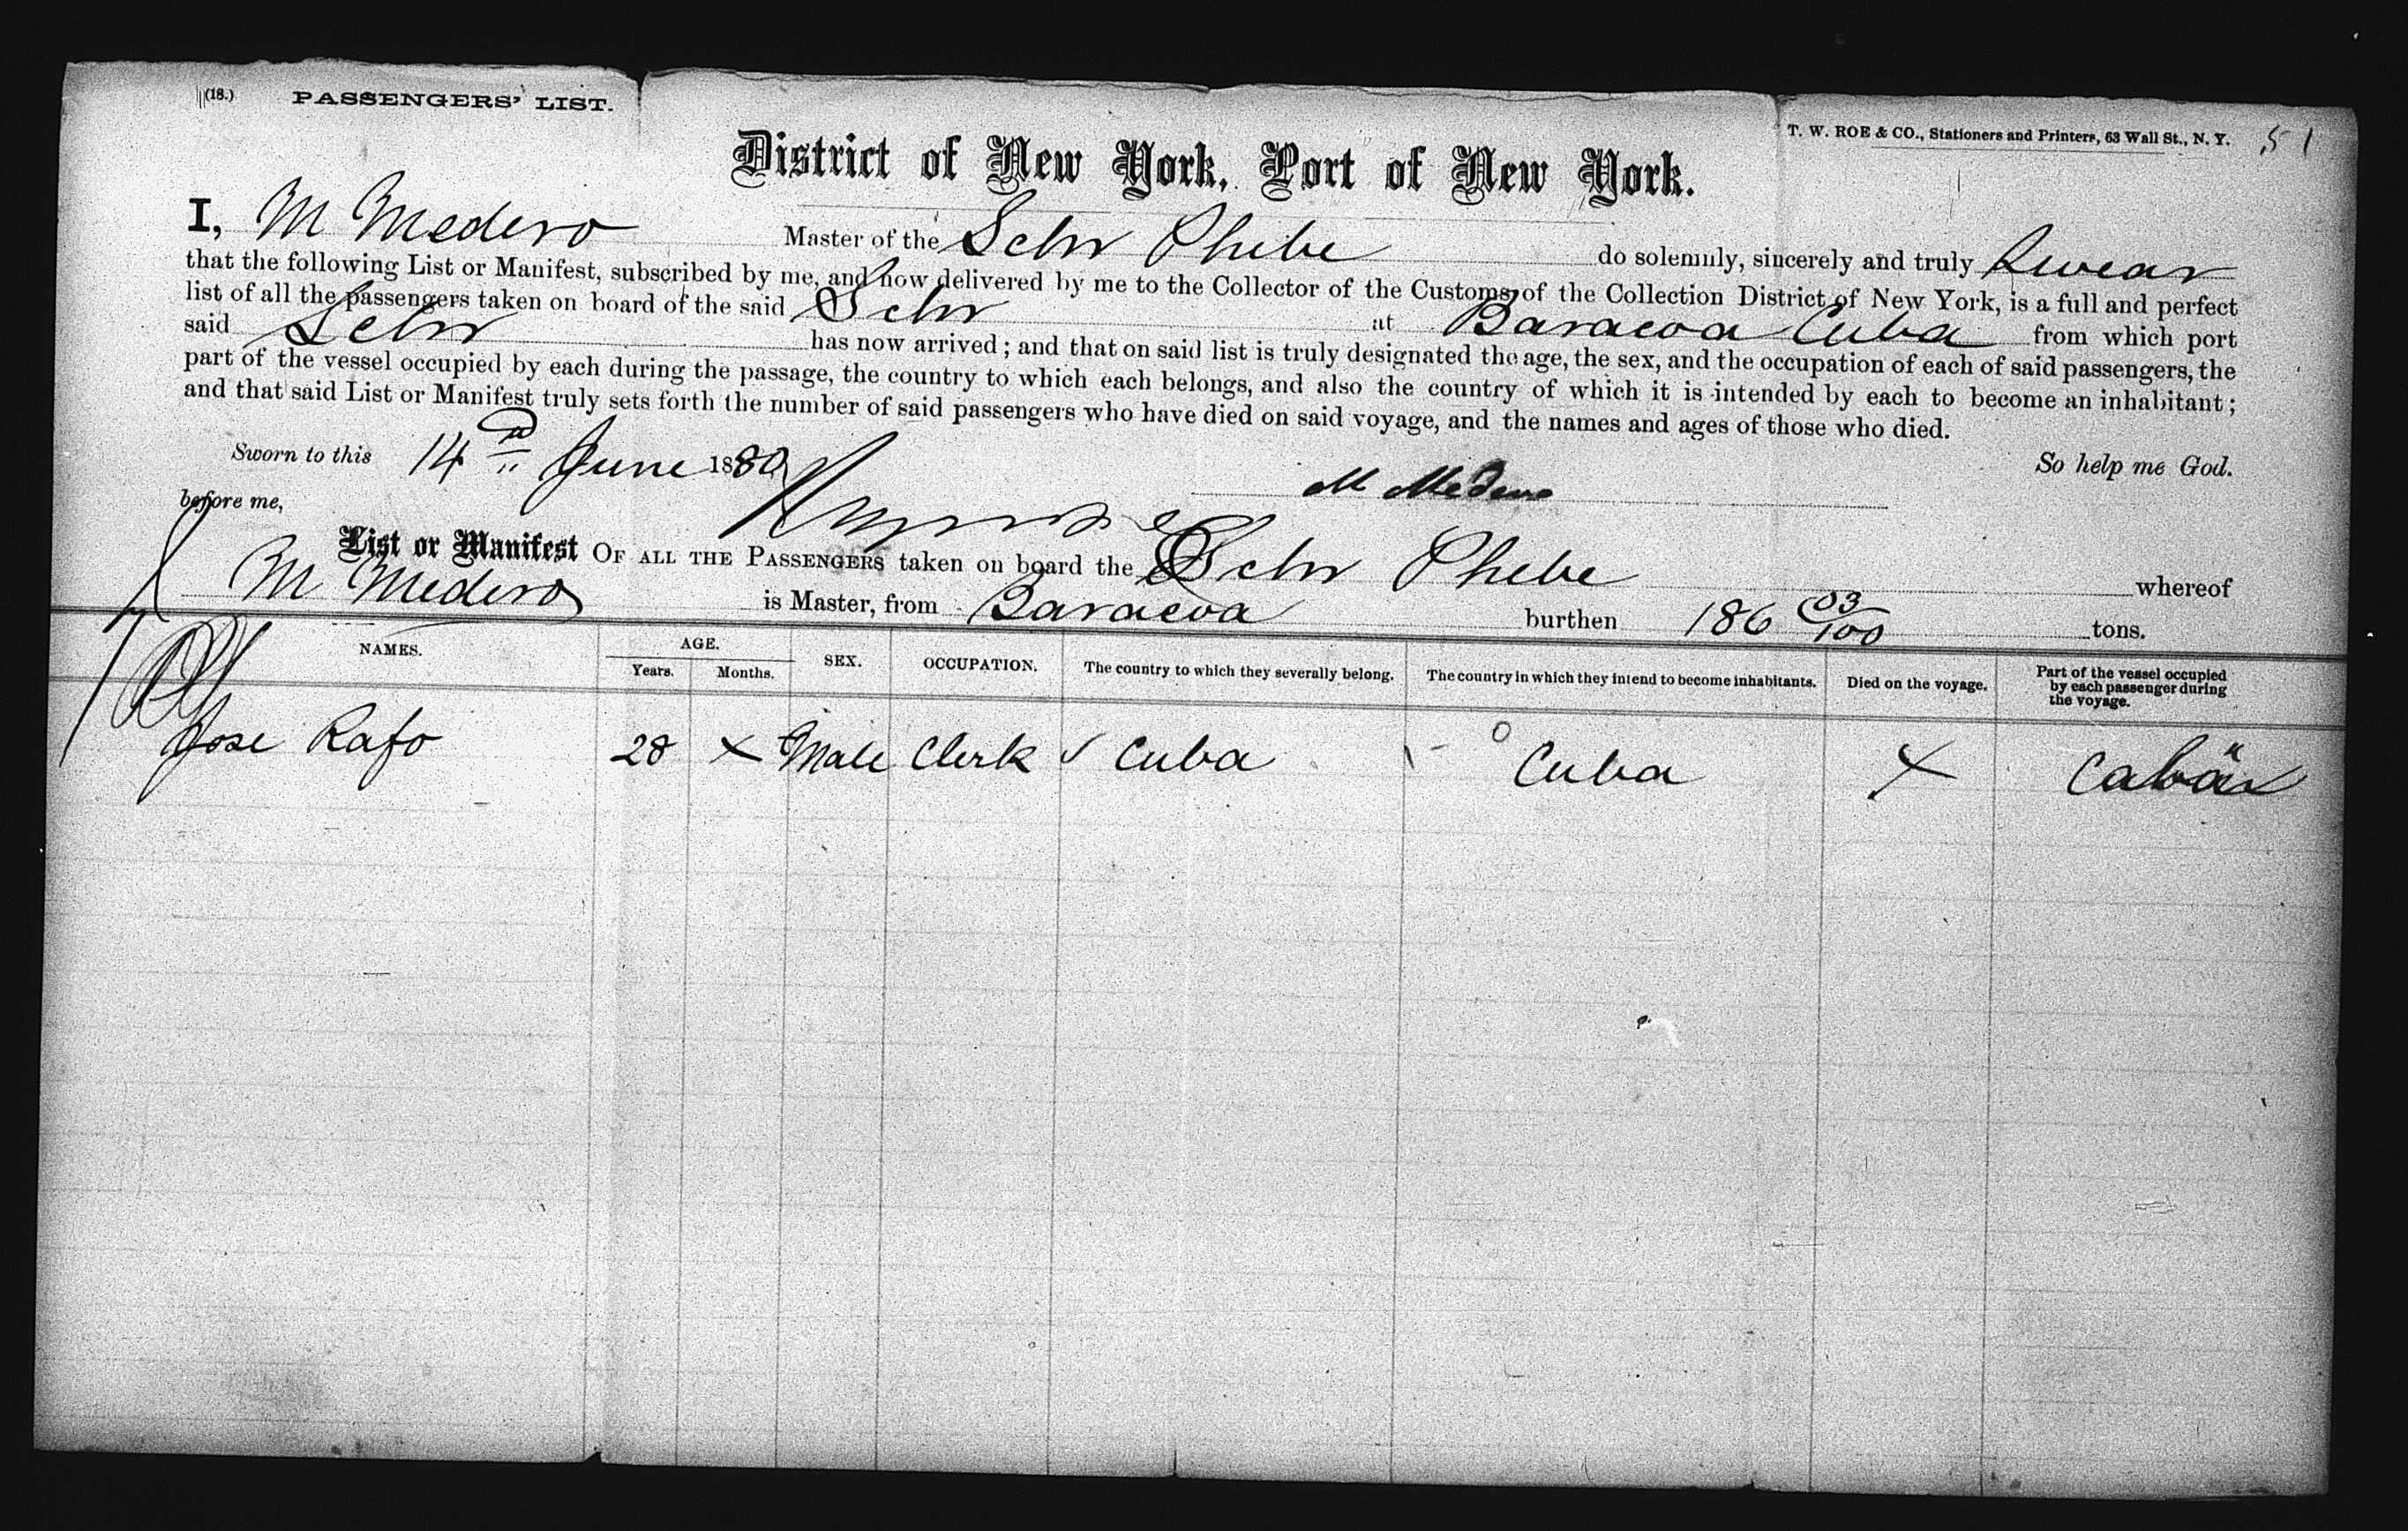 (18.) PASSENGERS' LIST.
T. W. ROE & CO., Stationers and Printers, 63 Wall St., N. Y. 51
District of New York, Port of New York.
I, M Medero Master of the Schr Phebe do solemnly, sincerely and truly Swear
that the following List or Manifest, subscribed by me, and now delivered by me to the Collector of the Customs of the Collection District of New York, is a full and perfect
list of all the passengers taken on board of the said Schr at Baracoa Cuba from which port
said Schr has now arrived; and that on said list is truly designated the age, the sex, and the occupation of each of said passengers, the
part of the vessel occupied by each during the passage, the country to which each belongs, and also the country of which it is intended by each to become an inhabitant;
and that said List or Manifest truly sets forth the number of said passengers who have died on said voyage, and the names and ages of those who died.
Sworn to this 14th June 1880 So help me God.
before me, M Medero
List or Manifest OF ALL THE PASSENGERS taken on board the Schr Phebe whereof
M Medero is Master, from Baracoa burthen 186 03/100 tons.
NAMES. AGE. Years. Months. SEX. OCCUPATION. The country to which they severally belong. The country in which they intend to become inhabitants. Died on the voyage. Part of the vessel occupied by each passenger during the voyage.
Jose Rafo 28 X Male Clerk Cuba Cuba X